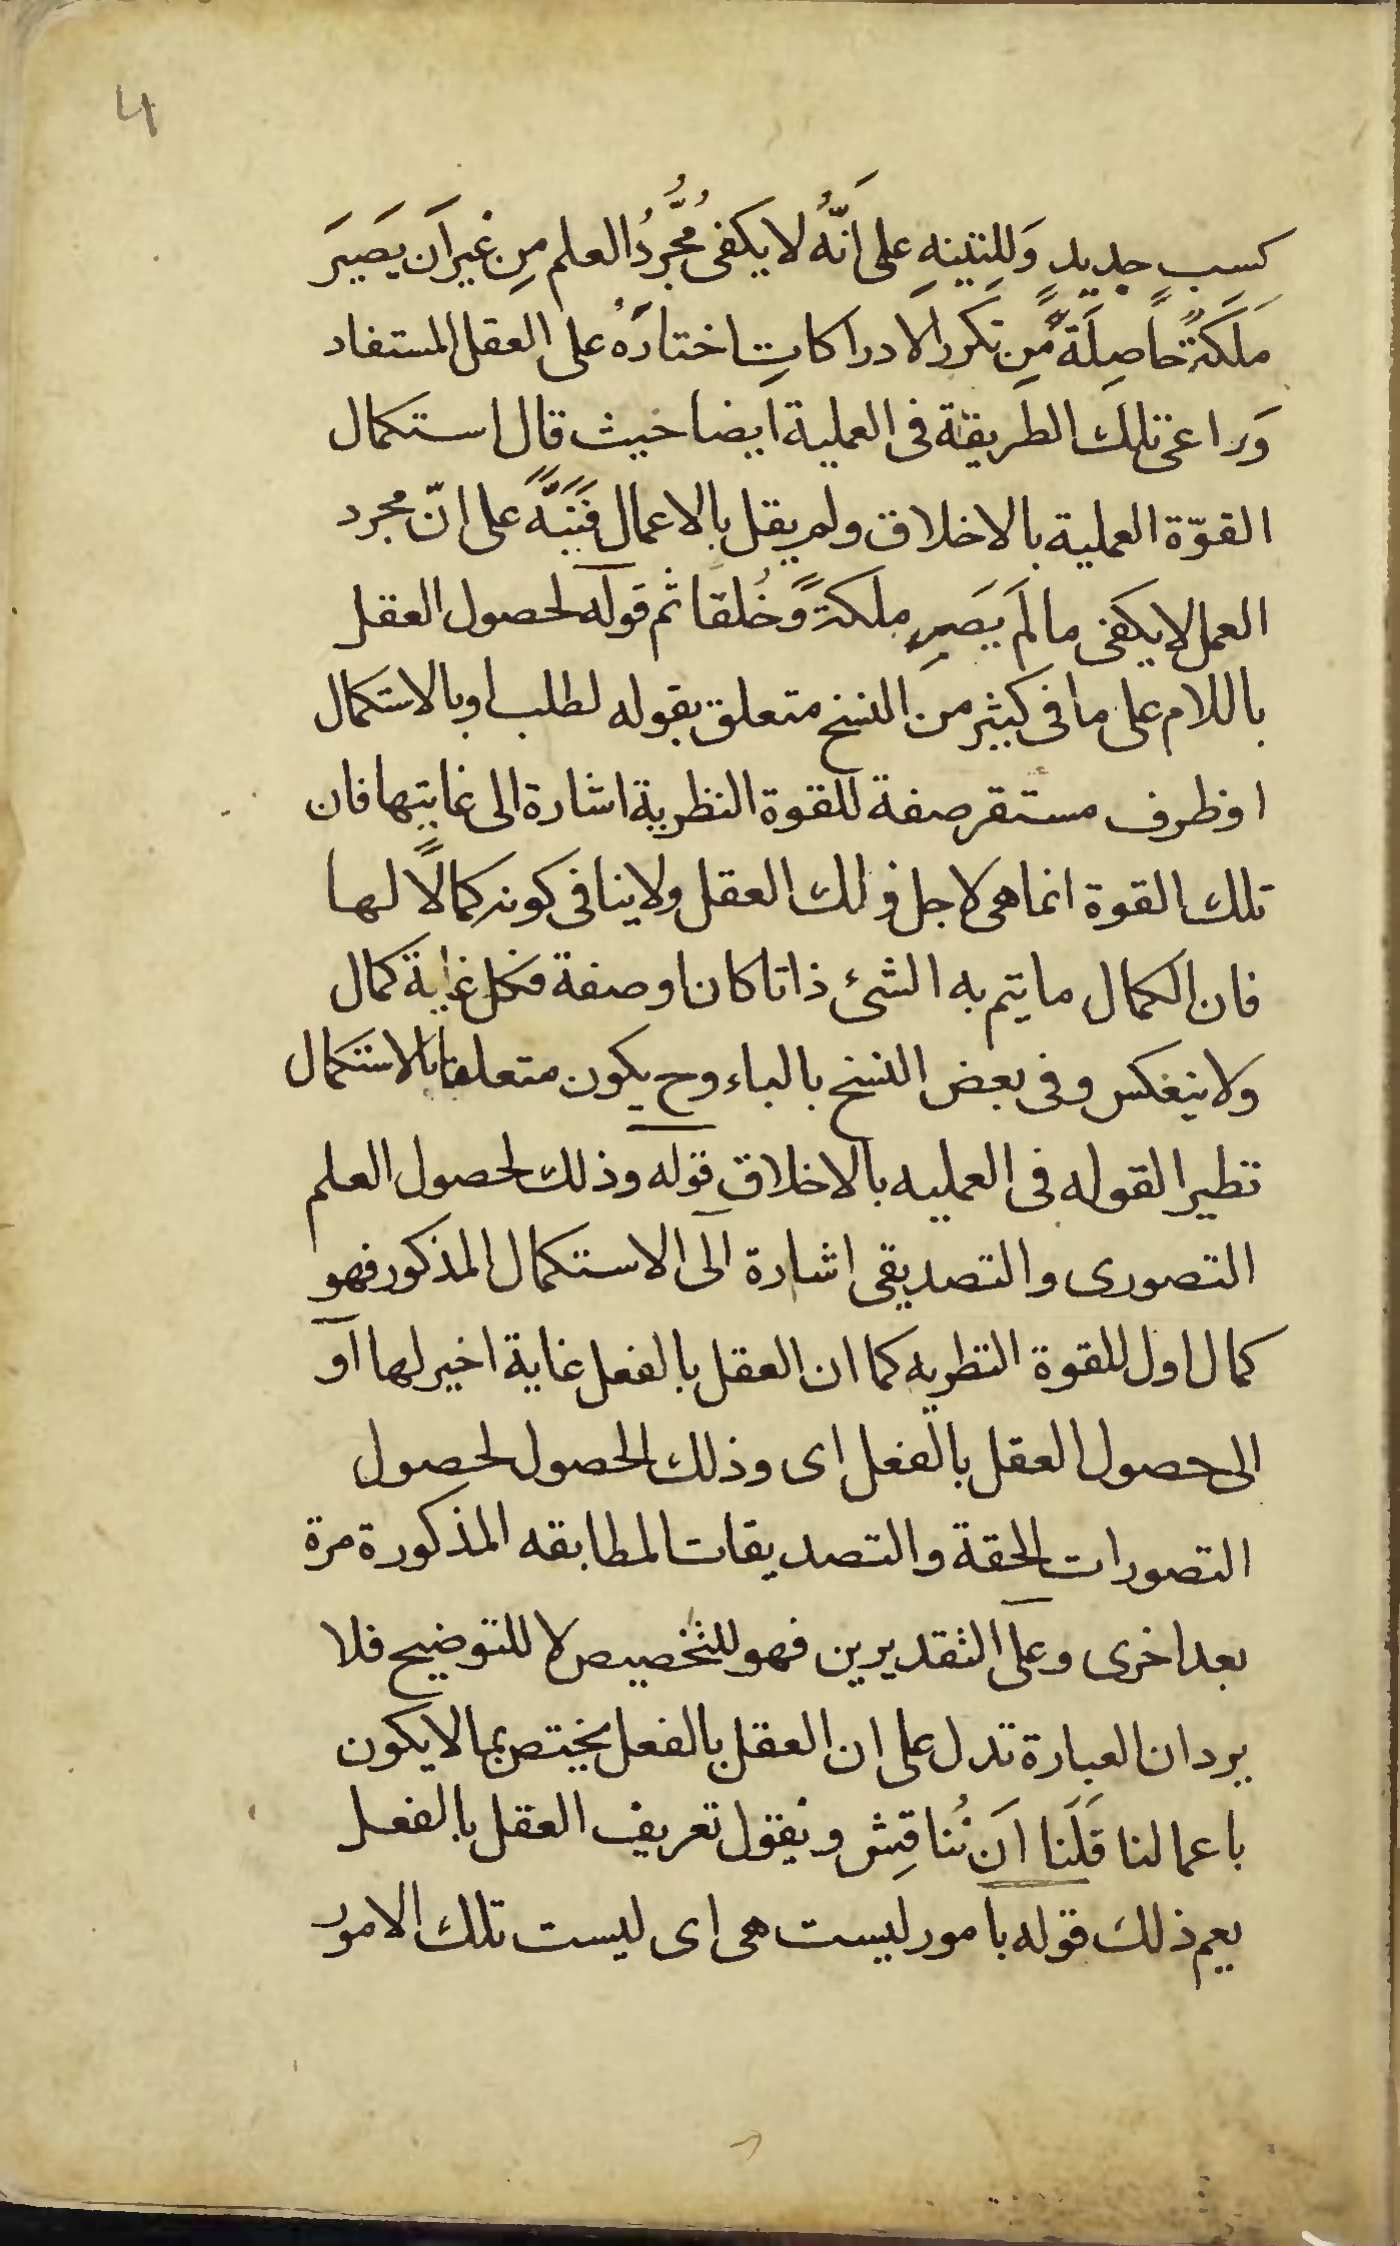 4
كسبٍ جديدٍ وَللتنبيهِ على اَنَّهُ لا يكفى مُجَّردُ العلم مِن غيراَن يَصيرَ
مَلَكَةً حاصِلَةً مِّن تكرر الادراكاتِ اختارَهُ على العقل المستفاد
وَراعى تلك الطريقة فى العملية ايضا حيث قال استكمال
القوّة العملية بالاخلاق ولم يقل بالاعمال فَنَبَّهَ على انّ مجرد
العمل لا يكفى مالَم يَصِر ملكةً وَّخُلقا ثم قوله لحصول العقل
باللام على ما فى كثير من النسخ متعلق بقوله لطلب او بالاستكمال
او ظرف مستقر صفة للقوة النظرية اشارة الى غايتها فان
تلك القوة انما هى لاجل ذلك العقل ولا ينافى كونه كمالاً لها
فان الكمال ما يتم به الشئ ذاتا كان او صفة فكل غاية كمال
ولا ينعكس وفى بعض النسخ بالباء وح يكون متعلقا بالاستكمال
نظيرا لقوله فى العمليه بالاخلاق قوله وذلك لحصول العلم
التصورى والتصديقى اشارة الى الاستكمال المذكور فهو
كمال اول للقوة النظريه كما ان العقل بالفعل غاية اخير لها او
الى حصول العقل بالفعل اى وذلك الحصول لحصول
التصورات الحقة والتصديقات المطابقه المذكورة مرة
بعد اخرى وعلى التقديرين فهو للتخصيص لا للتوضيح فلا
يرد ان العبارة تدل على ان العقل بالفعل يختص بما لا يكون
باعمالنا قَلَنا اَن نُناقِش ونقول تعريف العقل بالفعل
يعم ذلك قوله بامور ليست هى اى ليست تلك الامور